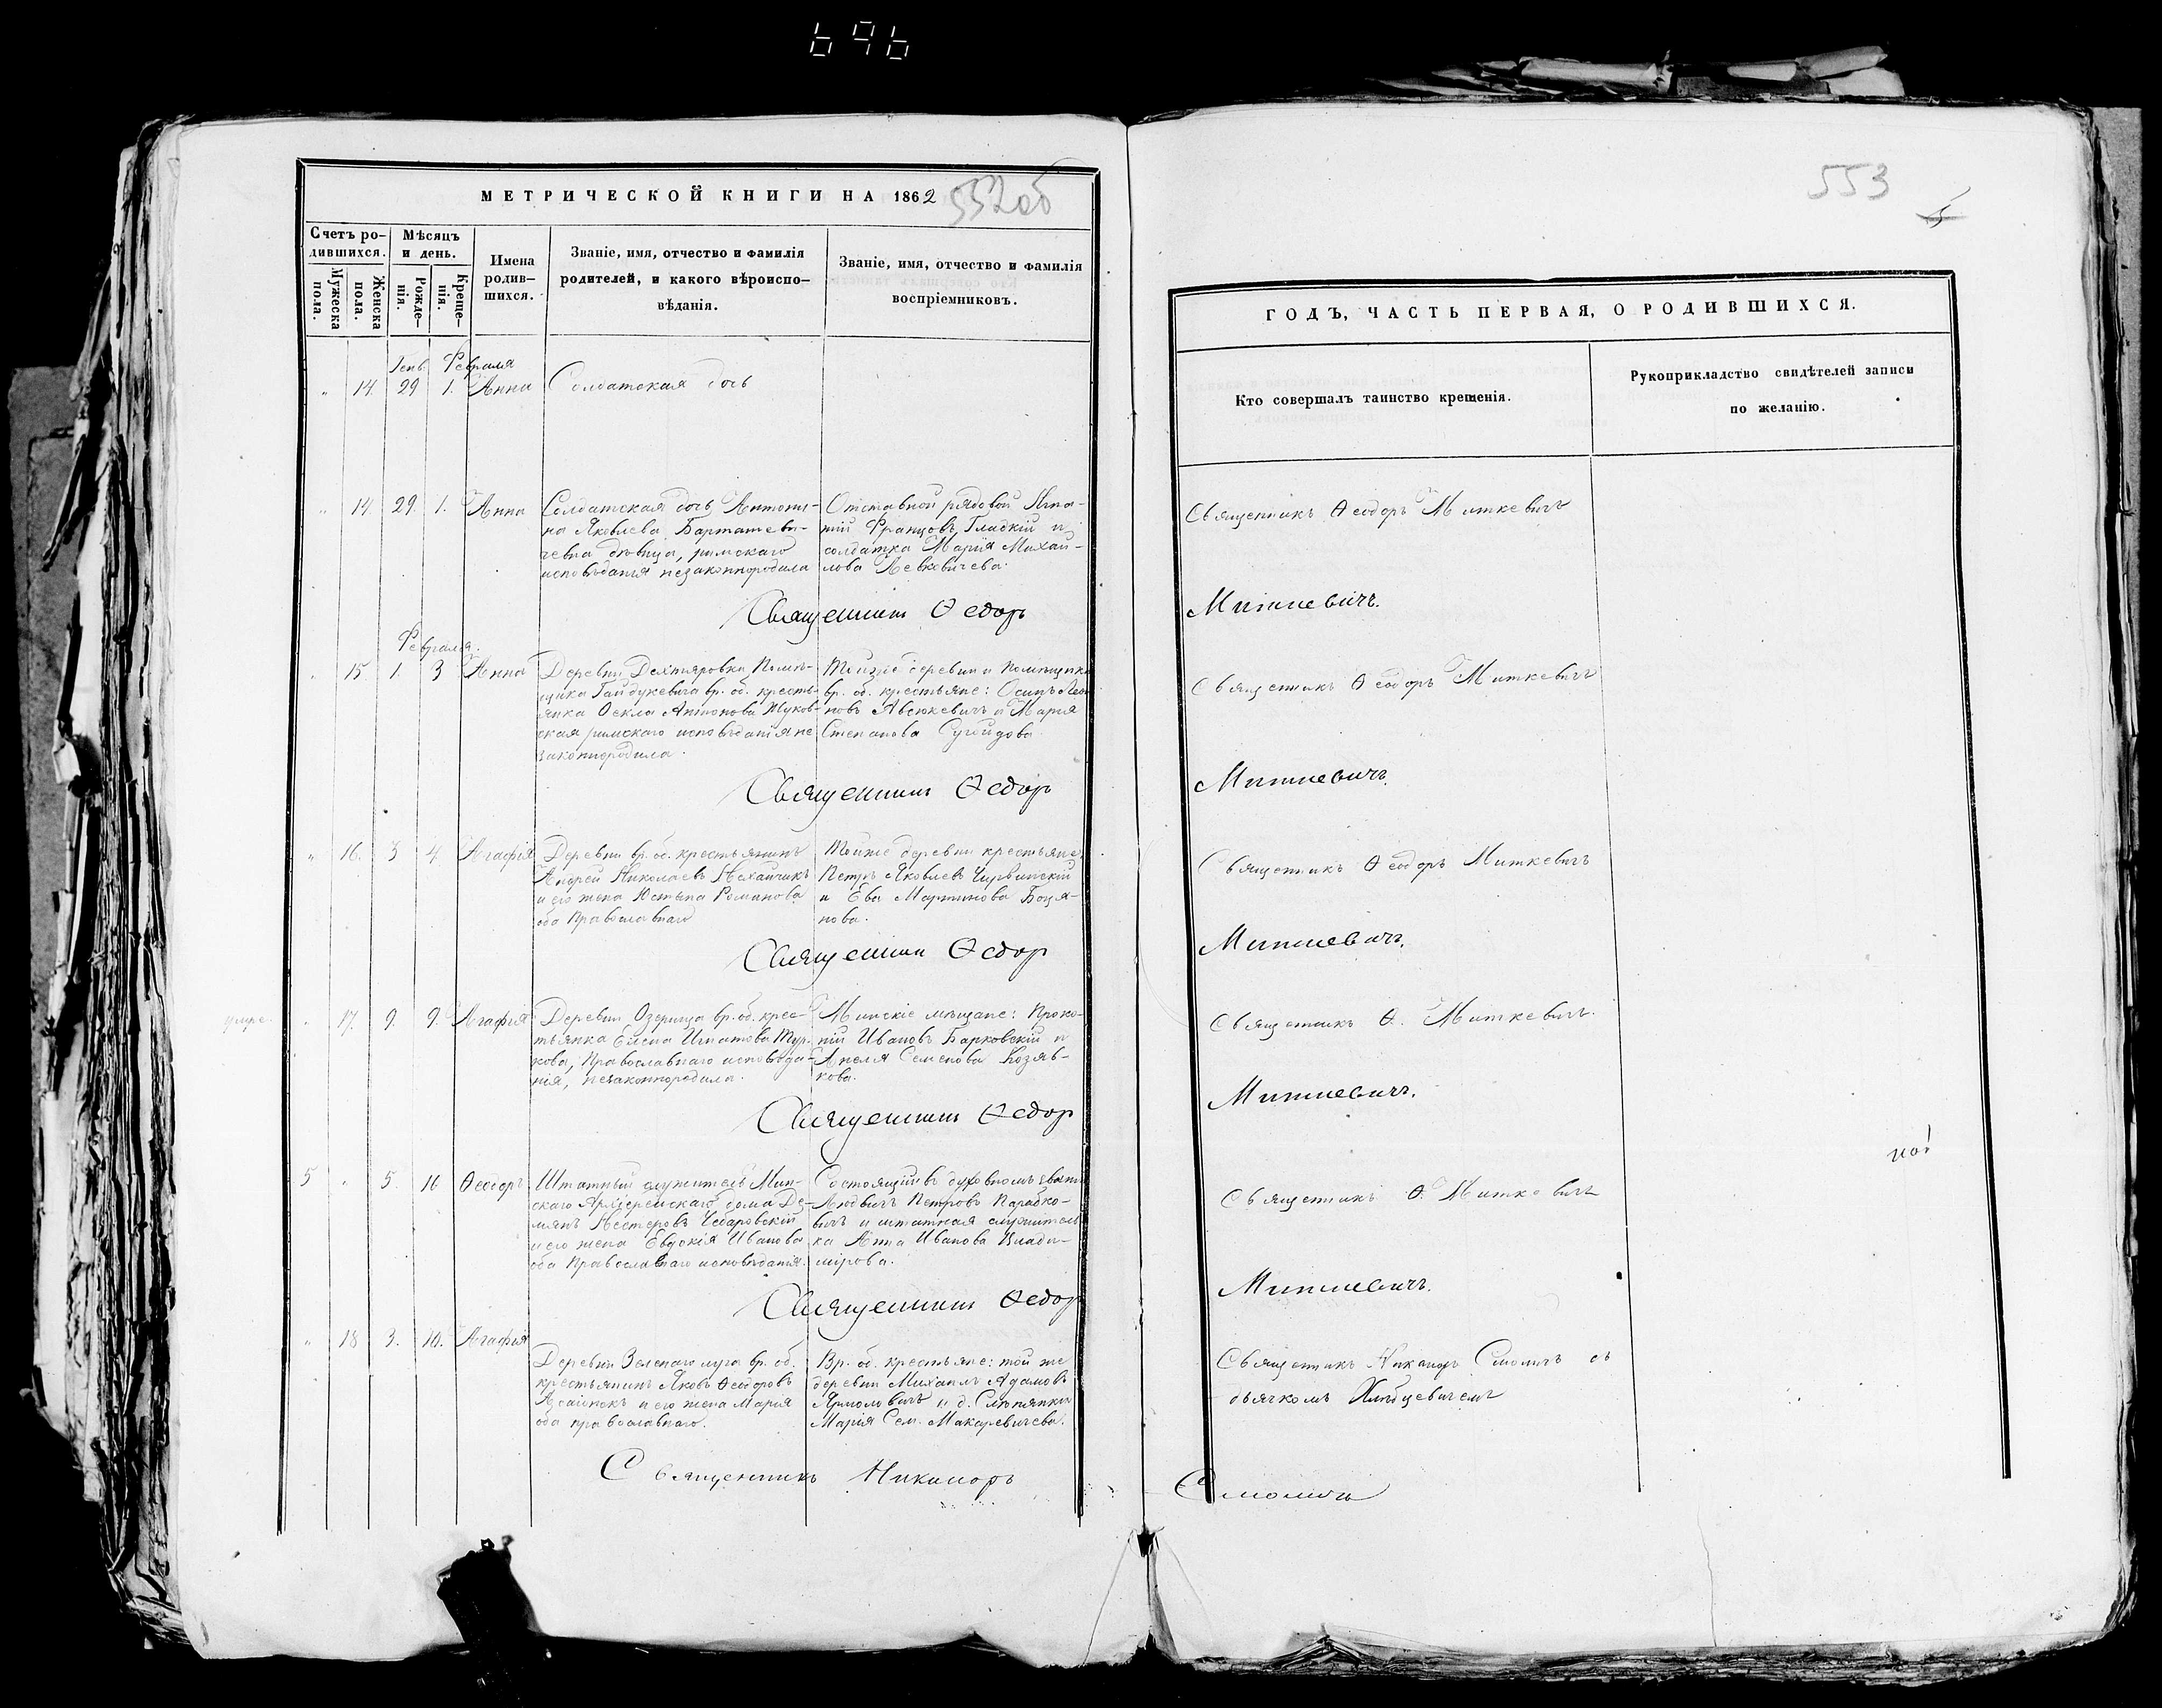 696
МЕТРИЧЕСКОЙ КНИГИ НА 1862
552об
Счетъ ро-
дившихся.
Мужеска пола.
Женска пола.
Мѣсяцъ
и день.
Рожде-
нія.
Креще-
нія.
Имена
родив-
шихся.
Званіе, имя, отчество и фамилія
родителей, и какого вѣроиспо-
вѣданія.
Званіе, имя, отчество и фамилія
воспріемниковъ.
Генв. Февраля
" 14. 29 1. Анна Солдатская дочь
" 14 29 1. Анна
Солдатская дочь Антони-
на Яковлева Барташеви-
чевна дѣвица, римскаго
исповѣданія незаконнородила
Отставной рядовой Игна-
тій Францовъ Гладкій и
солдатка Марія Михай-
лова Левковичева.
Священникъ Ѳедоръ
Февраля.
" 15. 1. 3 Анна
Деревни Дехтяровка Помѣ-
щика Гайдукевича вр. об. кресть-
янка Ѳекла Антонова Жуков-
ская римскаго исповѣданія не
законнородила.
Тойже деревни и помѣщика
вр. об. крестьяне: Осипъ
новъ Авсюкевичъ и Марія
Степанова
Священникъ Ѳедоръ
" 16. 3 4. Агафія
Деревни вр. об. крестьянинъ
Андрей Николаевъ
и его жена Юстына Романова
оба Православнаго
Тойже деревни крестьяне
Петръ Яковлевъ Чирвинскій
и Ева Мартинова Боця-
нова.
Священникъ Ѳедоръ
умре.
" 17. 9. 9. Агафія
Деревни Озерища вр. об. крес-
тьянка Елена Игнатова Тур-
кова, Православнаго исповѣда-
нія, незаконнородила.
Минскіе мѣщане: Проко-
пій Ивановъ Барковскій и
Анеля Семенова Козяв-
кова.
Священникъ Ѳедоръ
5 " 5. 16 Ѳеодоръ
Штатный служитель Мин-
скаго Архіерейскаго дома Де-
мянъ Нестеровъ Чебаровскій
и его жена Евдокія Иванова
оба Православнаго исповѣданія.
Состоящій въ духовномъ званіи
Людвигъ Петровъ Парабко-
вичъ и штатная служитель
ка Анна Иванова Влади-
мірова.
Священникъ Ѳедоръ
" 18 3. 10. Агафія
Деревни Зеленаго луга вр. об.
крестьянинъ Яковъ Ѳеодоровъ
и его жена Марія
оба православнаго.
Вр. об. крестьяне: той же
деревни Михаилъ Адамовъ
Ярмоловичъ и д. Слѣпянки
Марія Сем. Макаревичева.
Священникъ Никаноръ
553
5
ГОДЪ, ЧАСТЬ ПЕРВАЯ, О РОДИВШИХСЯ.
Кто совершалъ таинство крещенія.
Рукоприкладство свидѣтелей записи
по желанію.
Священникъ Ѳеодоръ Миткевичъ
Миткевичъ.
Священникъ Ѳеодоръ Миткевичъ
Миткевичъ.
Священникъ Ѳеодоръ Миткевичъ
Миткевичъ.
Священникъ Ѳ. Миткевичъ.
Миткевичъ.
Священникъ Ѳ. Миткевичъ
Миткевичъ.
Священникъ Никаноръ Смоличъ съ
дьячкомъ Хлѣбцевичемъ
Смоличъ